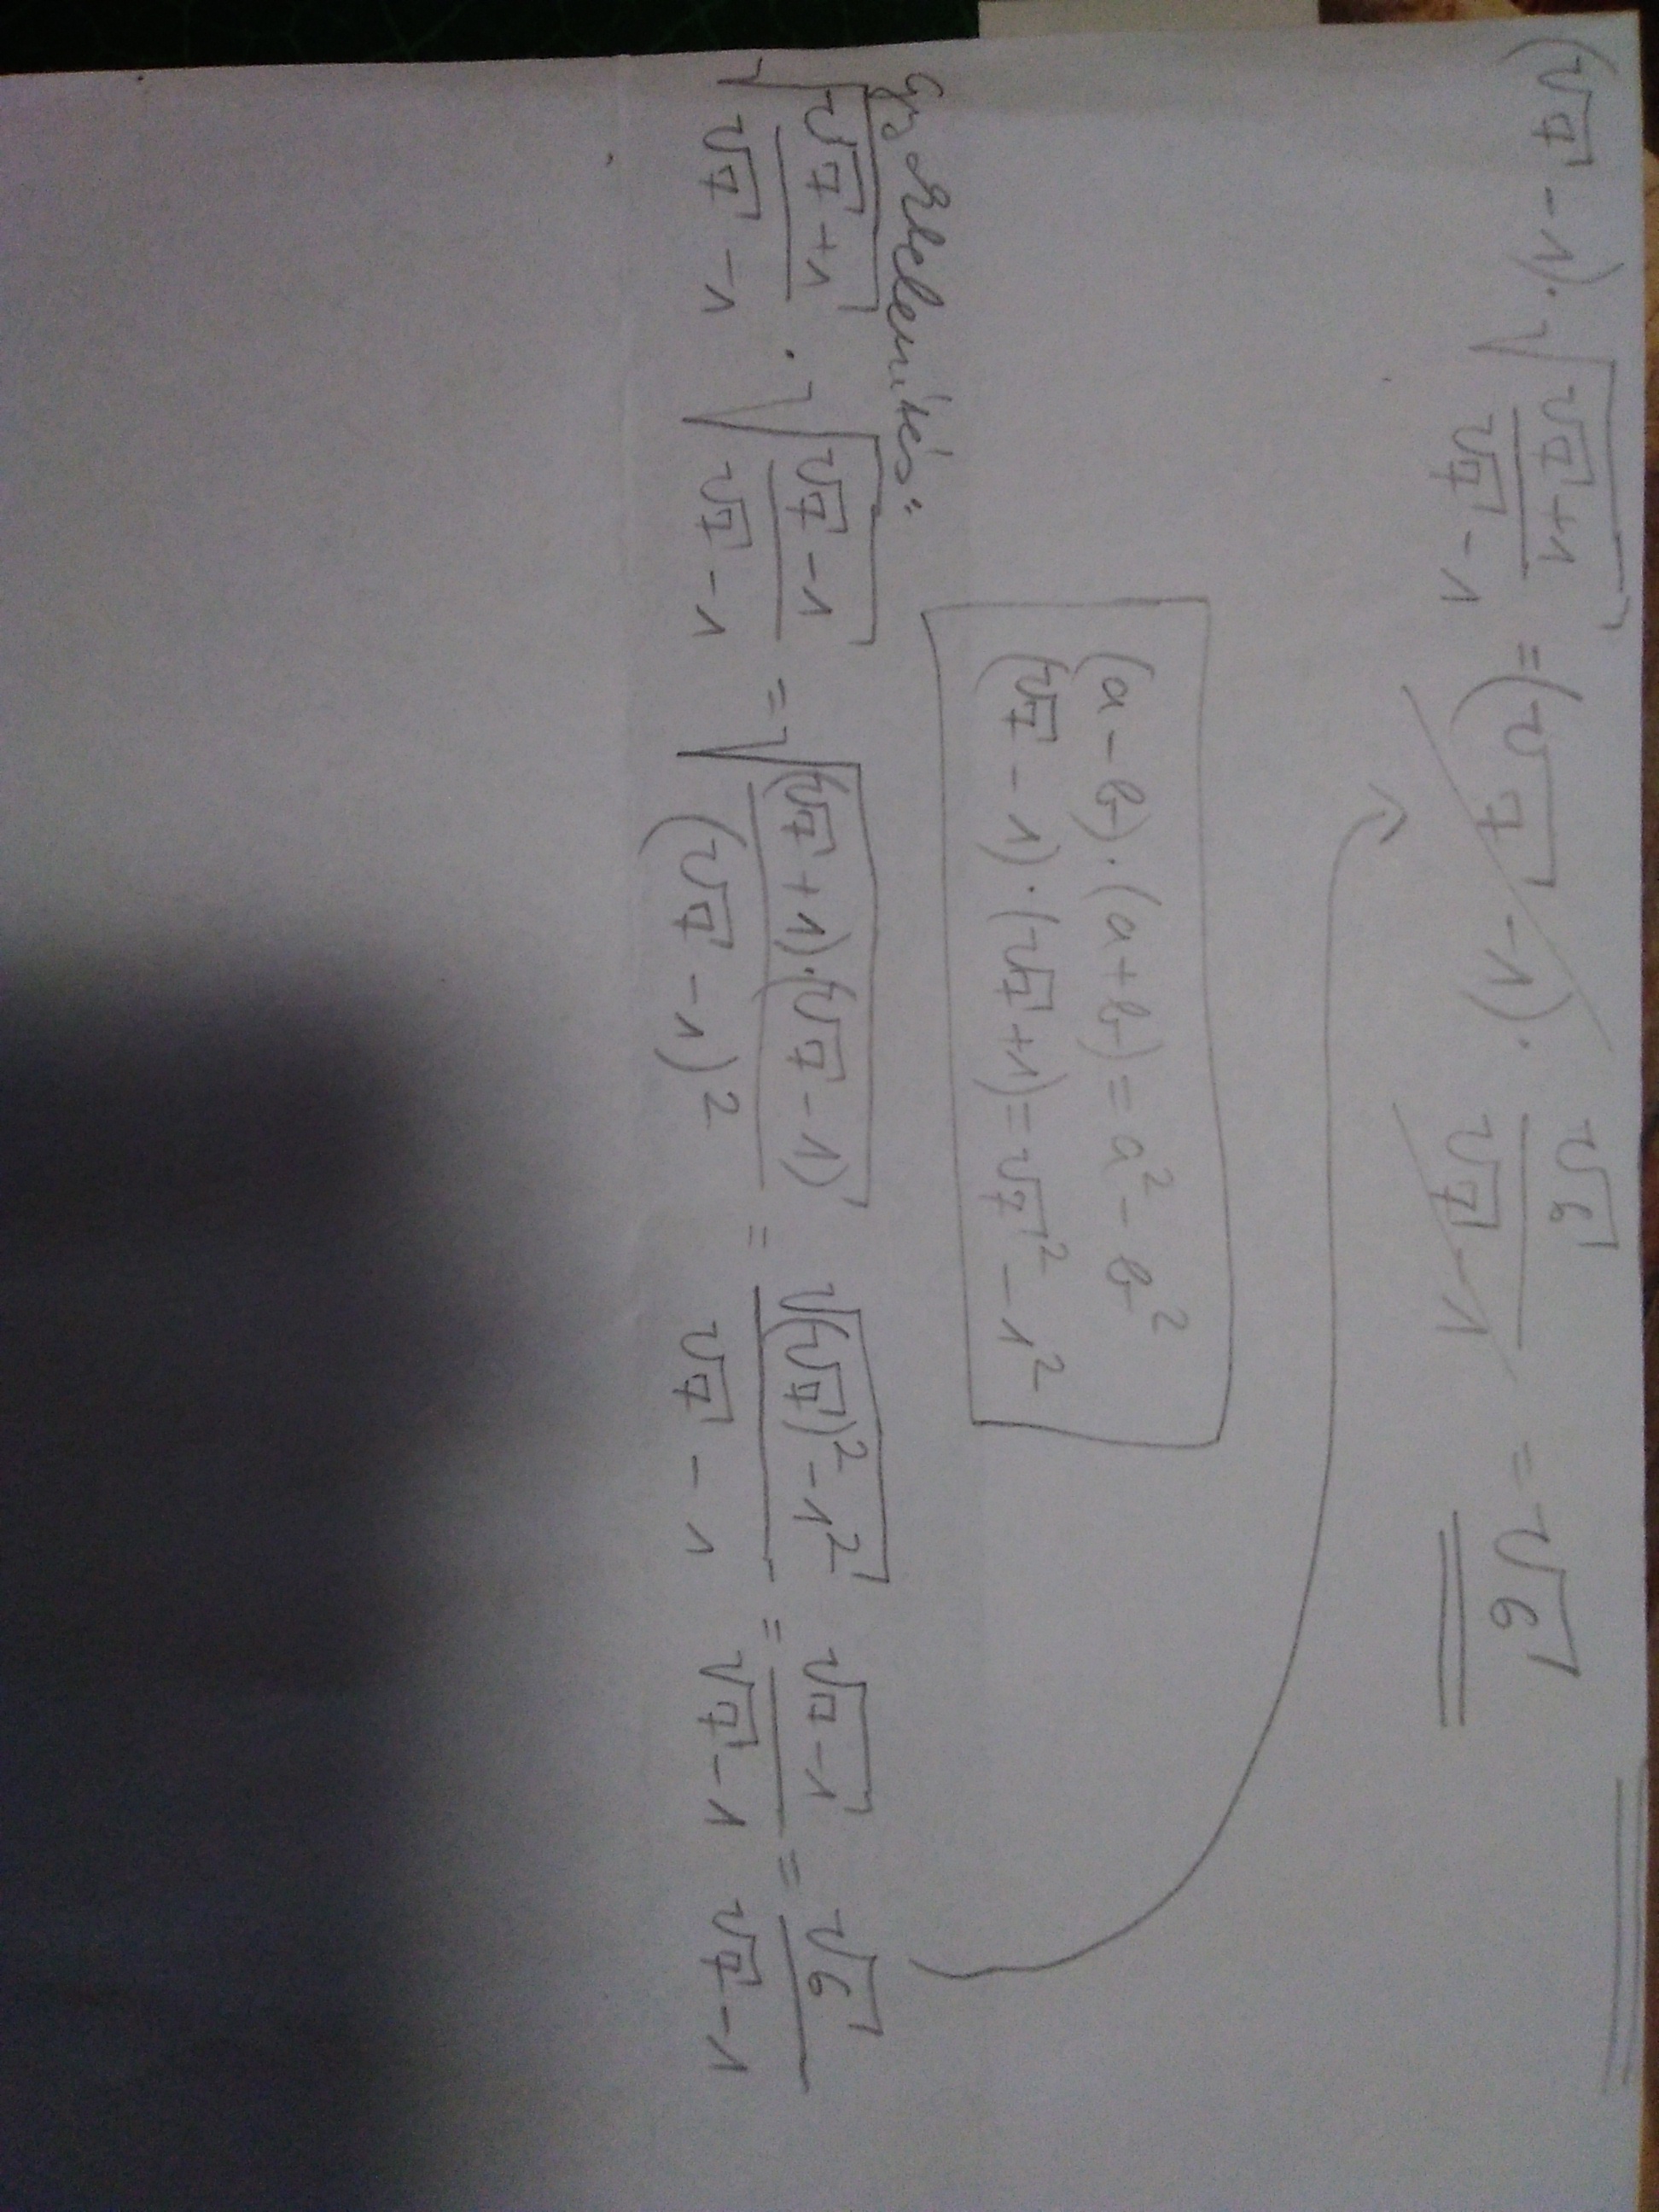 (√7 - 1) · √((√7 + 1)/(√7 - 1)) = (√7 - 1) · √6/(√7 - 1) = √6
(a - b) · (a + b) = a² - b²
(√7 - 1) · (√7 + 1) = √7² - 1²
√((√7 + 1)/(√7 - 1)) · √((√7 - 1)/(√7 - 1)) = √(((√7 + 1) · (√7 - 1))/(√7 - 1)²) = √((√7)² - 1²)/(√7 - 1) = √(7 - 1)/(√7 - 1) = √6/(√7 - 1)